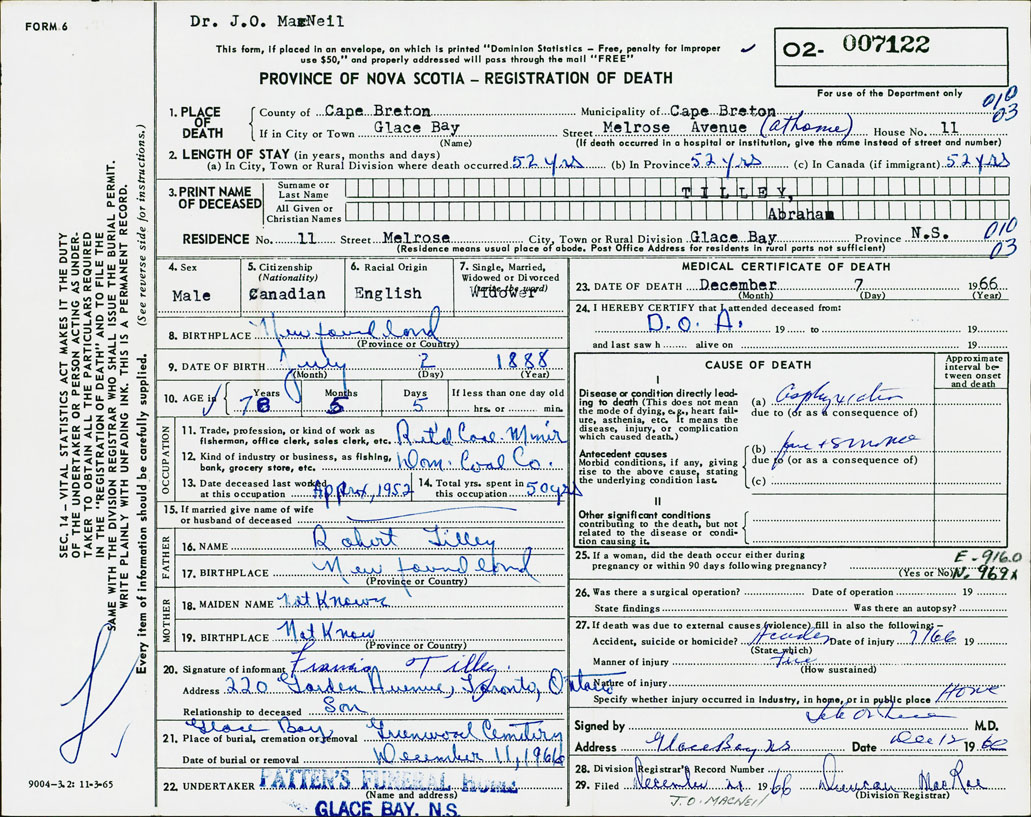 FORM 6
Dr. J.O. MacNeil
This form, if placed in an envelope, on which is printed "Dominion Statistics – Free, penalty for improper
use $50," and properly addressed will pass through the mail "FREE"
O2- 007122
PROVINCE OF NOVA SCOTIA – REGISTRATION OF DEATH
For use of the Department only
010
03
1. PLACE OF DEATH
County of Cape Breton Municipality of Cape Breton
If in City or Town Glace Bay Street Melrose Avenue (at home) House No. 11
(Name) (If death occurred in a hospital or institution, give the name instead of street and number)
2. LENGTH OF STAY (in years, months and days)
(a) In City, Town or Rural Division where death occurred 52 yrs (b) In Province 52 yrs (c) In Canada (if immigrant) 52 yrs
3. PRINT NAME OF DECEASED
Surname or Last Name TILLEY,
All Given or Christian Names Abraham
010
03
RESIDENCE No. 11 Street Melrose City, Town or Rural Division Glace Bay Province N.S.
(Residence means usual place of abode. Post Office Address for residents in rural parts not sufficient)
4. Sex
Male
5. Citizenship
(Nationality)
Canadian
6. Racial Origin
English
7. Single, Married,
Widowed or Divorced
(write the word)
Widower
8. BIRTHPLACE Newfoundland
(Province or Country)
9. DATE OF BIRTH July 2 1888
(Month) (Day) (Year)
10. AGE in Years Months Days If less than one day old
78 5 5 hrs. or min.
OCCUPATION
11. Trade, profession, or kind of work as
fisherman, office clerk, sales clerk, etc. Ret'd Coal Minir
12. Kind of industry or business, as fishing,
bank, grocery store, etc. Dom. Coal Co.
13. Date deceased last worked
at this occupation Apprx, 1952
14. Total yrs. spent in
this occupation 50 yrs
15. If married give name of wife
or husband of deceased
FATHER
16. NAME Robert Tilley
17. BIRTHPLACE Newfoundland
(Province or Country)
MOTHER
18. MAIDEN NAME Not Known
19. BIRTHPLACE Not Know
(Province or Country)
20. Signature of informant Francis Tilley.
Address 220 Garden Avenue, Toronto, Ontario
Relationship to deceased Son
Glace Bay
21. Place of burial, cremation or removal Greenwood Cemetery
Date of burial or removal December 11, 1966
22. UNDERTAKER PATTEN'S FUNERAL HOME
(Name and address)
GLACE BAY, N.S.
MEDICAL CERTIFICATE OF DEATH
23. DATE OF DEATH December 7 1966
(Month) (Day) (Year)
24. I HEREBY CERTIFY that I attended deceased from:
D.O.A. 19 to 19
and last saw h alive on 19
CAUSE OF DEATH
Approximate
interval be-
tween onset
and death
I
Disease or condition directly lead-
ing to death (This does not mean
the mode of dying, e.g., heart fail-
ure, asthenia, etc. It means the
disease, injury, or complication
which caused death.)
(a) Asphyxiation
due to (or as a consequence of)
Antecedent causes
Morbid conditions, if any, giving
rise to the above cause, stating
the underlying condition last.
(b) fire + smoke
due to (or as a consequence of)
(c)
II
Other significant conditions
contributing to the death, but not
related to the disease or condi-
tion causing it.
25. If a woman, did the death occur either during
pregnancy or within 90 days following pregnancy?
(Yes or No)
E-916.0
N. 969X
26. Was there a surgical operation? Date of operation 19
State findings Was there an autopsy?
27. If death was due to external causes (violence) fill in also the following:–
Accident, suicide or homicide? Date of injury 7/66 19
(State which)
Manner of injury Fire
(How sustained)
Nature of injury
Specify whether injury occurred in industry, in home, or in public place Home
Signed by M.D.
Address Glace Bay N.S. Date Dec 12 1966
28. Division Registrar's Record Number
29. Filed December 1966 Duncan MacRae
(Division Registrar)
J.O. MACNEIL
9004-3.2: 11-3-65
SEC. 14 – VITAL STATISTICS ACT MAKES IT THE DUTY
OF THE UNDERTAKER OR PERSON ACTING AS UNDER-
TAKER TO OBTAIN ALL THE PARTICULARS REQUIRED
IN THE "REGISTRATION OF DEATH" AND TO FILE THE
SAME WITH THE DIVISION REGISTRAR WHO SHALL ISSUE THE BURIAL PERMIT.
WRITE PLAINLY WITH UNFADING INK. THIS IS A PERMANENT RECORD.
Every item of information should be carefully supplied. (See reverse side for instructions.)